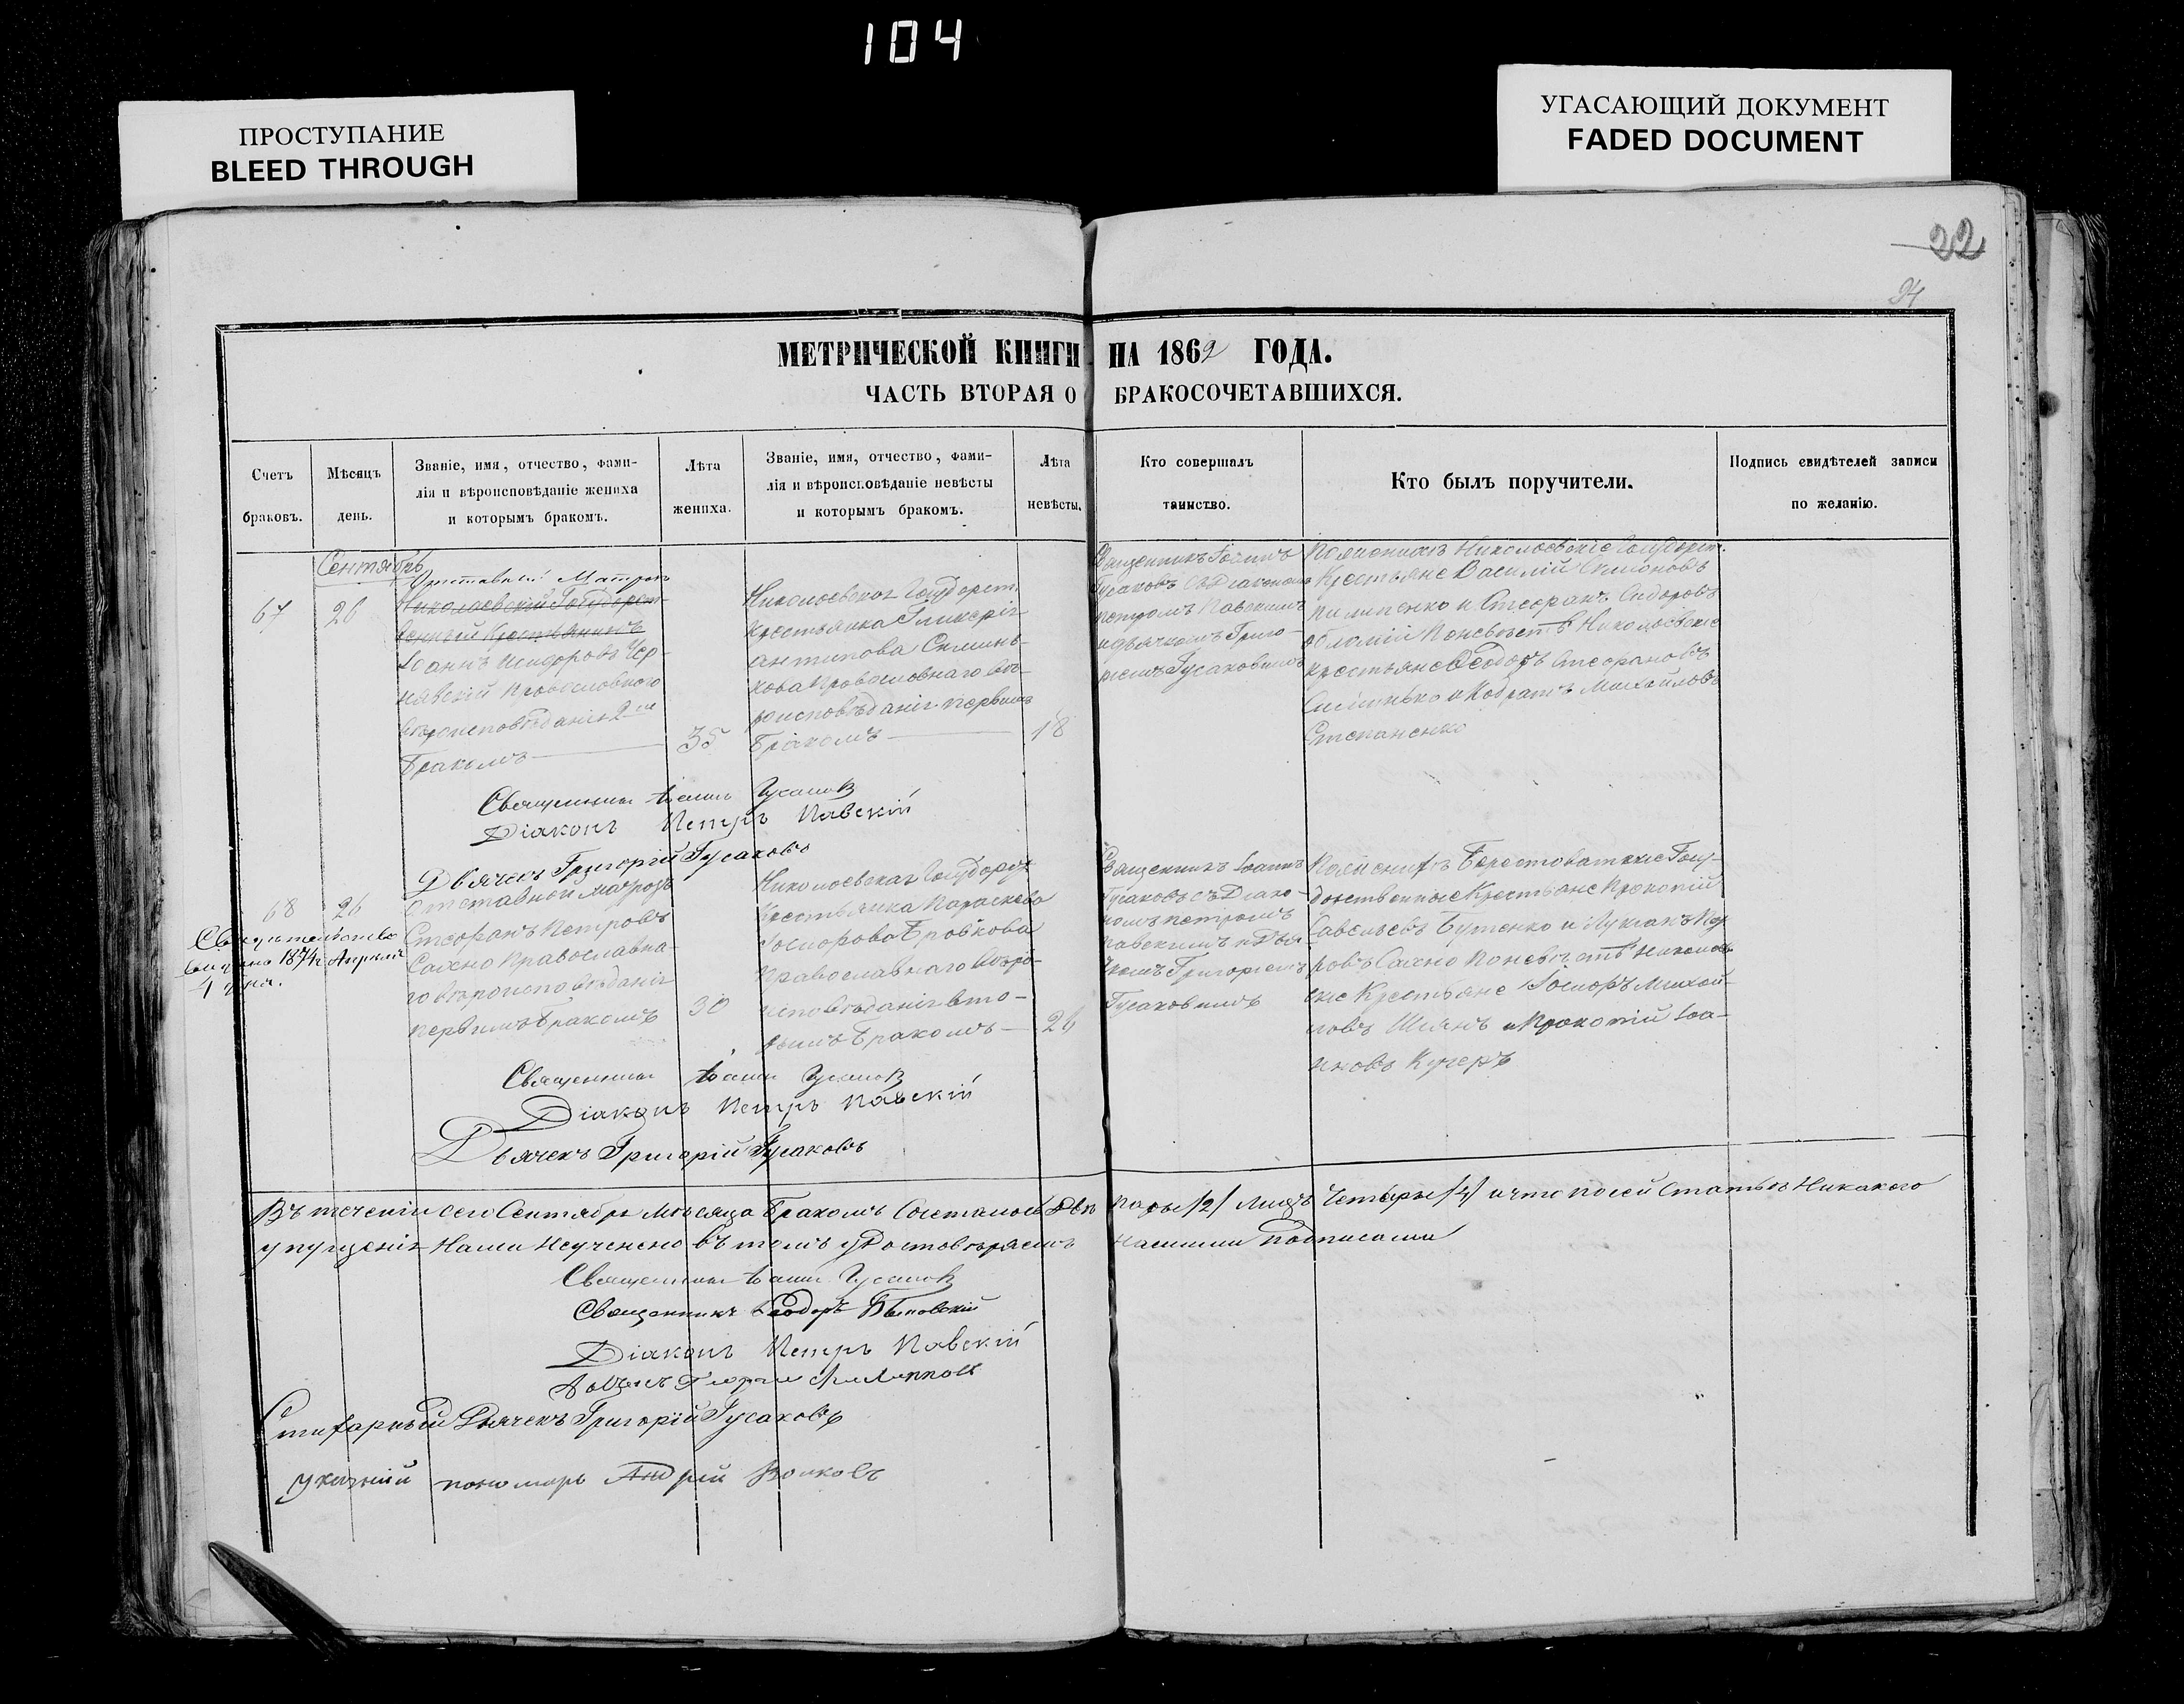 104
ПРОСТУПАНИЕ
BLEED THROUGH
УГАСАЮЩИЙ ДОКУМЕНТ
FADED DOCUMENT
22
МЕТРИЧЕСКОЙ КНИГИ НА 1862 ГОДА.
ЧАСТЬ ВТОРАЯ О БРАКОСОЧЕТАВШИХСЯ.
Счетъ
браковъ.
Мѣсяцъ
день.
Званіе, имя, отчество, фами-
лія и вѣроисповѣданіе жениха
и которымъ бракомъ.
Лѣта
жениха.
Званіе, имя, отчество, фами-
лія и вѣроисповѣданіе невѣсты
и которымъ бракомъ.
Лѣта
невѣсты.
Кто совершалъ
таинство.
Кто былъ поручители.
Подпись свидѣтелей записи
по желанію.
Сентябрь
67
26
Отставный Матрозъ
Николаевскій Государст-
венный Крестьянинъ
Іоаннъ Исидоровъ Чер-
нявскій Православного
вѣроисповѣданія 2мъ
Бракомъ
35
Николаевская Государст.
крестьянка Гликерія
Антипова
Православнаго вѣ-
роисповѣданія первымъ
Бракомъ
18
Священникъ Іоаннъ
Гусаковъ съ Діакономъ
Петромъ Павскимъ
и дьячкомъ Григо-
ріемъ Гусаковымъ
По женихѣ Николаевскіе Государст.
Крестьяне Василій Симоновъ
Пилипенко и Стефанъ Сидоровъ
По невѣстѣ Николаевскіе
крестьяне Феодоръ Стефановъ
и Кодратъ Михайловъ
Степаненко
Священникъ Іоаннъ Гусаковъ
Діаконъ Петръ Павскій
Дьячекъ Григорій Гусаковъ
68
26
Свидетельство
выдано 1874 г Апреля
Отставной матрозъ
Стефанъ Петровъ
Сахно Православна-
го вѣроисповѣданія
первымъ бракомъ
30
Николаевская Государст
Крестьянка Параскева
Іосифова Бровкова
Православнаго вѣро-
исповѣданія вто-
рымъ Бракомъ
26
Священникъ Іоаннъ
Гусаковъ съ Діако-
номъ Петромъ
Павскимъ и Дья-
чкомъ Григоріемъ
Гусаковымъ
По женихѣ Берестоватскіе Госу-
дарственные Крестьяне Прокопій
Савельевъ Бутенко и Лукіанъ Пет
ровъ Сахно По невѣстѣ Николаев
скіе Крестьяне Іосифъ Михай-
ловъ Шіянъ и Прокопій Іоа-
нновъ Кучеръ
Священникъ Іоаннъ Гусаковъ
Діаконъ Петръ Павскій
Дьячекъ Григорій Гусаковъ
Въ теченіи сего Сентября мѣсяца Бракомъ Сочетаной Двѣ Пары /2/ Лицъ Четыре /4/ и что по сей Статьѣ Никакого
упущенія Нами Неучинено въ томъ удостовѣряемъ нашими подписами
Священникъ Іоаннъ Гусаковъ
Священникъ Феодоръ
Діаконъ Петръ Павскій
Стихарный Дьячекъ Григорій Гусаковъ
Указный пономарь Андрій Волковъ